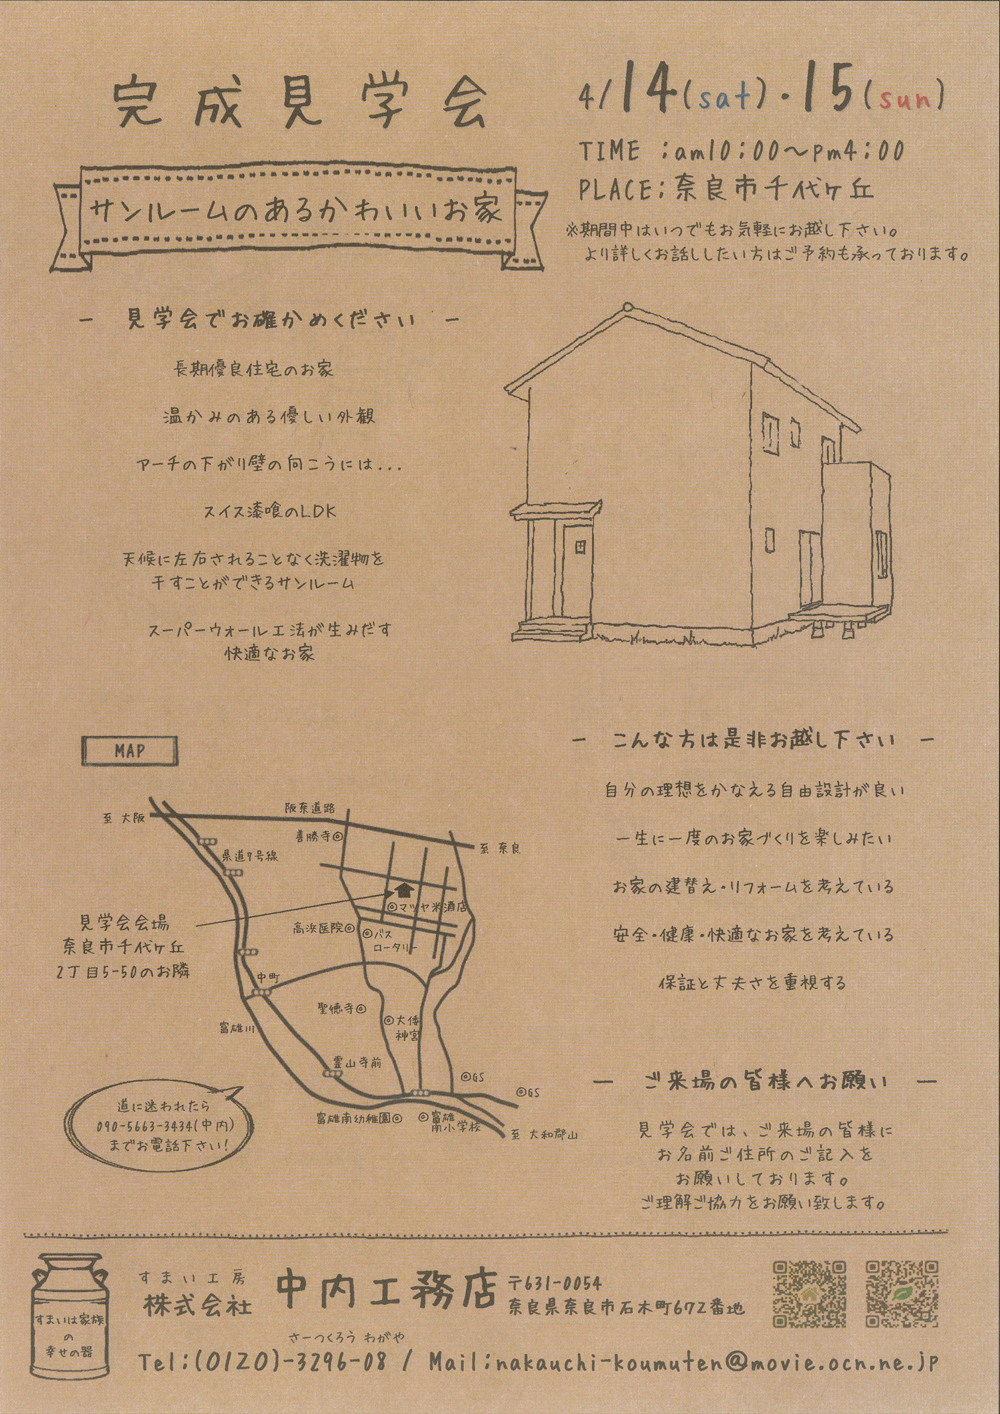 完成見学会
サンルームのあるかわいいお家
4/14(sat)・15(sun)
TIME :am10:00〜pm4:00
PLACE:奈良市千代ヶ丘
※期間中はいつでもお気軽にお越し下さい。
より詳しくお話ししたい方はご予約も承っております。
− 見学会でお確かめください −
長期優良住宅のお家
温かみのある優しい外観
アーチの下がり壁の向こうには...
スイス漆喰のLDK
天候に左右されることなく洗濯物を
干すことができるサンルーム
スーパーウォール工法が生みだす
快適なお家
MAP
至 大阪
阪奈道路
喜勝寺◎
至 奈良
県道7号線
◎マツヤ米酒店
見学会会場
奈良市千代ヶ丘
2丁目5-50のお隣
高浜医院◎
◎バス
ロータリー
中町
聖徳寺◎
◎大倭
神宮
富雄川
霊山寺前
◎GS
◎GS
富雄南幼稚園◎
◎富雄
南小学校
至 大和郡山
道に迷われたら
090-5663-3434(中内)
までお電話下さい!
− こんな方は是非お越し下さい −
自分の理想をかなえる自由設計が良い
一生に一度のお家づくりを楽しみたい
お家の建替え・リフォームを考えている
安全・健康・快適なお家を考えている
保証と丈夫さを重視する
− ご来場の皆様へお願い −
見学会では、ご来場の皆様に
お名前ご住所のご記入を
お願いしております。
ご理解ご協力をお願い致します。
すまいは家族
の
幸せの器
すまい工房
株式会社
中内工務店
〒631-0054
奈良県奈良市石木町672番地
さーつくろう わがや
Tel:(0120)-3296-08 / Mail:nakauchi-koumuten@movie.ocn.ne.jp